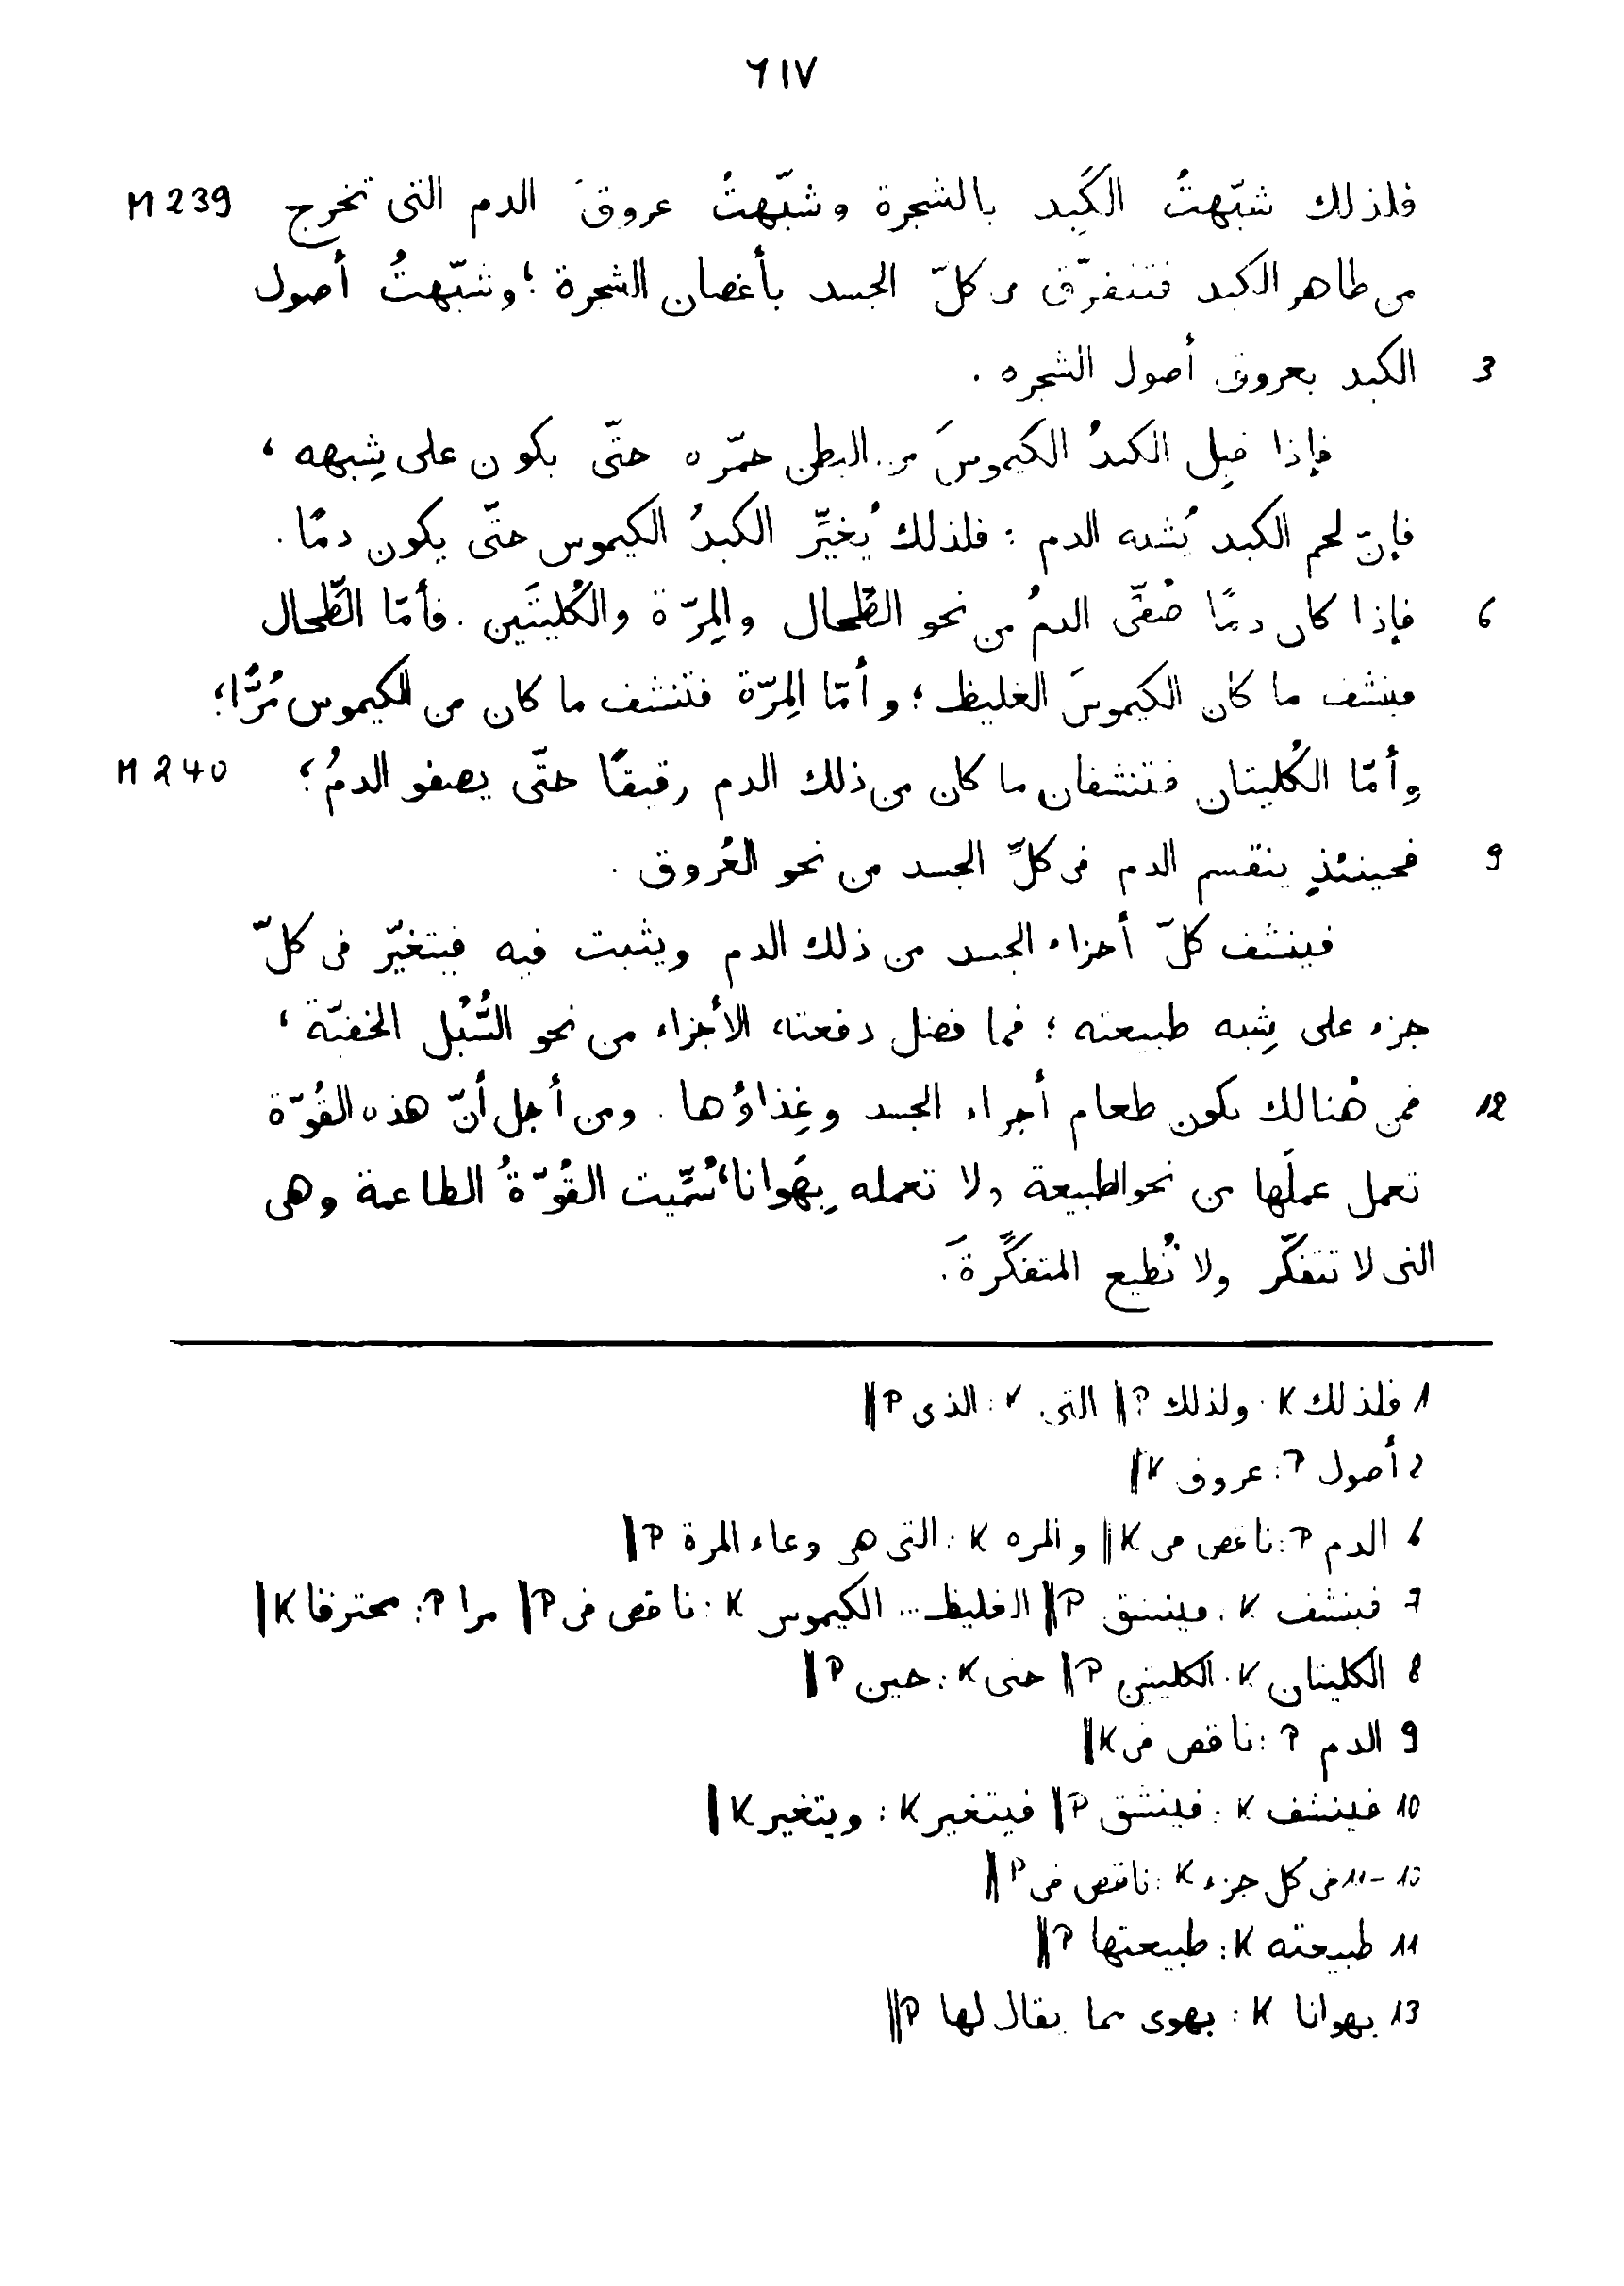 ٦١٧
فلذلك شبّهتُ الكَبِد بالشجرة وشبّهتُ عروقَ الدم التى تخرج M 239
من ظاهر الكبد فتنفرّق فى كلّ الجسد بأغصان الشجرة ؛ وشبّهتُ أصول
3 الكبد بعروق أصول الشجره .
فإذا قبِل الكبدُ الكيموسَ من البطن حمّره حتّى يكون على شِبهه ،
فإنّ لحم الكبد يُشبه الدم : فلذلك يُغيِّر الكبدُ الكيموس حتّى يكون دمًا .
6 فإذا كان دمًا صُفّى الدمُ من نحو الطَّحال والمِرّة والكُليتَين . فأمّا الطَّحال
فينشف ما كان الكيموسَ الغليظ ؛ وأمّا المِرّة فتنشف ما كان من الكيموس مُرًّا ؛
وأمّا الكُليتان فتنشفان ما كان من ذلك الدم رقيقًا حتّى يصفو الدمُ ؛ M 240
9 فحينئذٍ ينقسم الدم فى كلّ الجسد من نحو العُروق .
فينشف كلّ أجزاء الجسد من ذلك الدم ويثبت فيه فيتغيّر فى كلّ
جزء على شِبه طبيعته ؛ فما فضل دفعته الأجزاء من نحو السُّبُل الخفيّة ،
12 فمن هُنالك يكون طعام أجزاء الجسد وغِذاؤُها . ومن أجل أنّ هذه القُوّة
تعمل عملَها من نحو الطبيعة ولا تعمله بِهَوانا ، سُمِّيت القُوّةُ الطاعمة وهى
التى لا تتفكّر ولا تُطيع المتفكِّرةَ .
1 فلذلك K : ولذلك P || التى K : الذى P ||
2 أصول P : عروق K ||
6 الدم P : ناقص فى K || والمره K : التى هى وعاء المرة P ||
7 فينشف K : فينشق P || الغليظ ... الكيموس K : ناقص فى P || مرا P : محترقا K ||
8 الكليتان K : الكليتين P || حتى K : حين P ||
9 الدم P : ناقص فى K ||
10 فينشف K : فينشق P || فيتغير K : ويتغير K ||
10-11 فى كل جزء K : ناقص فى P ||
11 طبيعته K : طبيعتها P ||
13 بهوانا K : بهوى مما يقال لها P ||